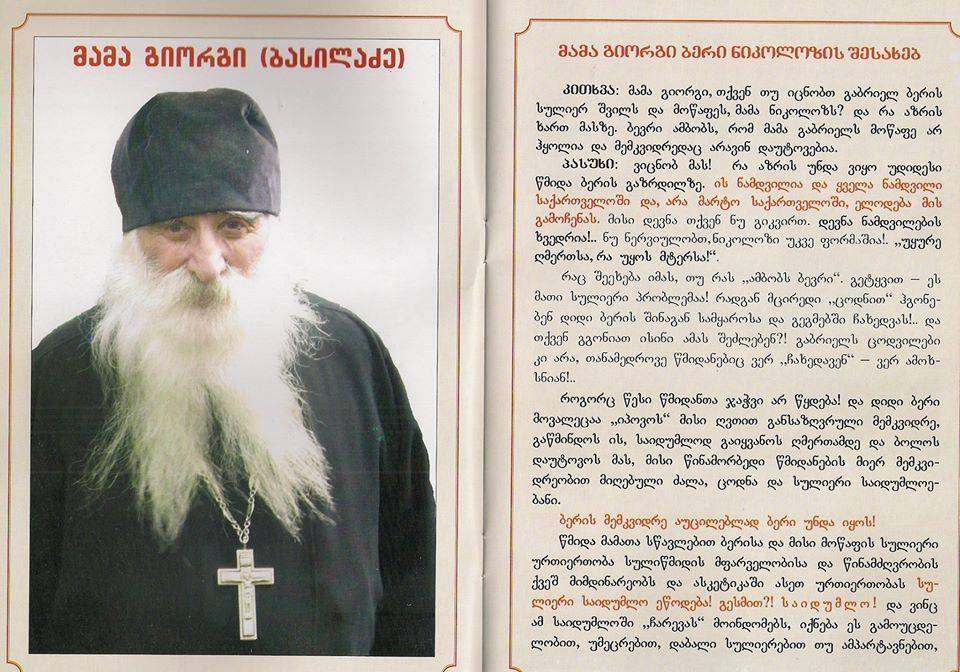 მამა გიორგი (ბასილაძე)
მამა გიორგი ბერი ნიკოლოზის შესახებ
კითხვა: მამა გიორგი, თქვენ თუ იცნობთ გაბრიელ ბერის
სულიერ შვილს და მოწაფეს, მამა ნიკოლოზს? და რა აზრის
ხართ მასზე. ბევრი ამბობს, რომ მამა გაბრიელს მოწაფე არ
ჰყოლია და მემკვიდრედაც არავინ დაუტოვებია.
პასუხი: ვიცნობ მას! რა აზრის უნდა ვიყო უდიდესი
წმიდა ბერის გაზრდილზე. ის ნამდვილია და ყველა ნამდვილი
საქართველოში და, არა მარტო საქართველოში, ელოდება მის
გამოჩენას. მისი დევნა თქვენ ნუ გიკვირთ. დევნა ნამდვილების
ხვედრია!.. ნუ ნერვიულობთ, ნიკოლოზი უკვე ფორმაშია!. „უყურე
ღმერთსა, რა უყოს მტერსა!“.
რაც შეეხება იმას, თუ რას „ამბობს ბევრი“. გეტყვით – ეს
მათი სულიერი პრობლემაა! რადგან მცირედი „ცოდნით“ ჰგონე-
ბენ დიდი ბერის შინაგან სამყაროსა და გეგმებში ჩახედვას!.. და
თქვენ გგონიათ ისინი ამას შეძლებენ?! გაბრიელს ცოდვილები
კი არა, თანამედროვე წმიდანებიც ვერ „ჩახედავენ“ – ვერ ამოხ-
სნიან!..
როგორც წესი წმიდანთა ჯაჭვი არ წყდება! და დიდი ბერი
მოვალეცაა „იპოვოს“ მისი ღვთით განსაზღვრული მემკვიდრე,
გაწმინდოს ის, საიდუმლოდ გაიყვანოს ღმერთამდე და ბოლოს
დაუტოვოს მას, მისი წინამორბედი წმიდანების მიერ მემკვი-
დრეობით მიღებული ძალა, ცოდნა და სულიერი საიდუმლოე-
ბანი.
ბერის მემკვიდრე აუცილებლად ბერი უნდა იყოს!
წმიდა მამათა სწავლებით ბერისა და მისი მოწაფის სულიერი
ურთიერთობა სულიწმიდის მფარველობისა და წინამძღვრობის
ქვეშ მიმდინარეობს და ასკეტიკაში ასეთ ურთიერთობას სუ-
ლიერი საიდუმლო ეწოდება! გესმით?! საიდუმლო! და ვინც
ამ საიდუმლოში „ჩარევას“ მოინდომებს, იქნება ეს გამოუცდე-
ლობით, უმეცრებით, დაბალი სულიერებით თუ ამპარტავნებით,